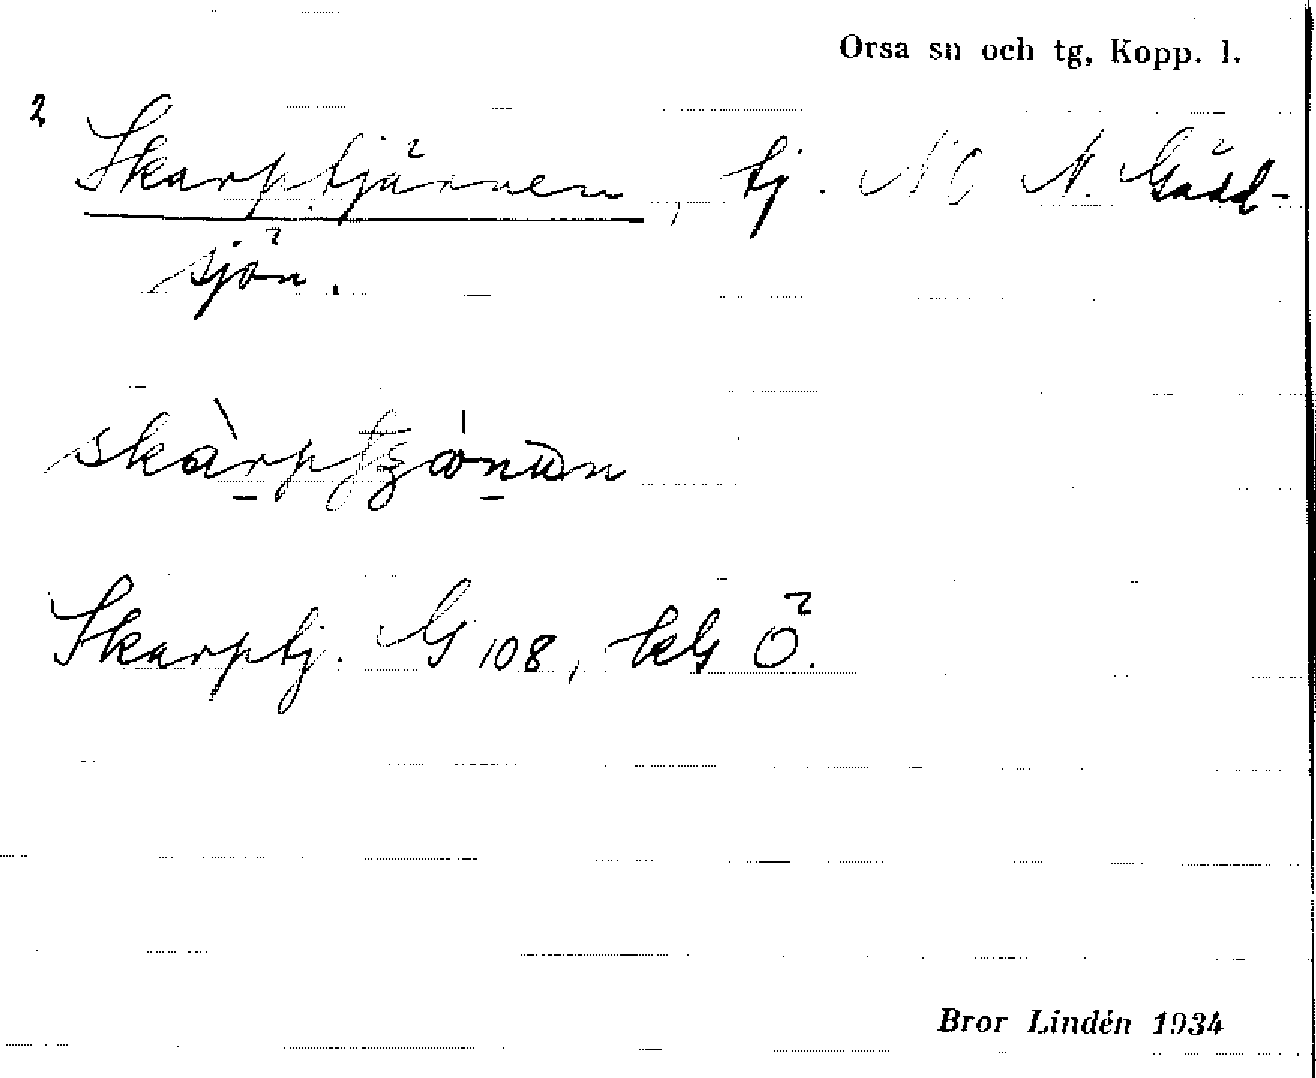 Orsa sn och tg, Kopp. l.
2 Skarptjärnen, tj. NO N. Gädd-
sjön.
Skarptj. G 108, bkl Ö.
Bror Lindén 1934